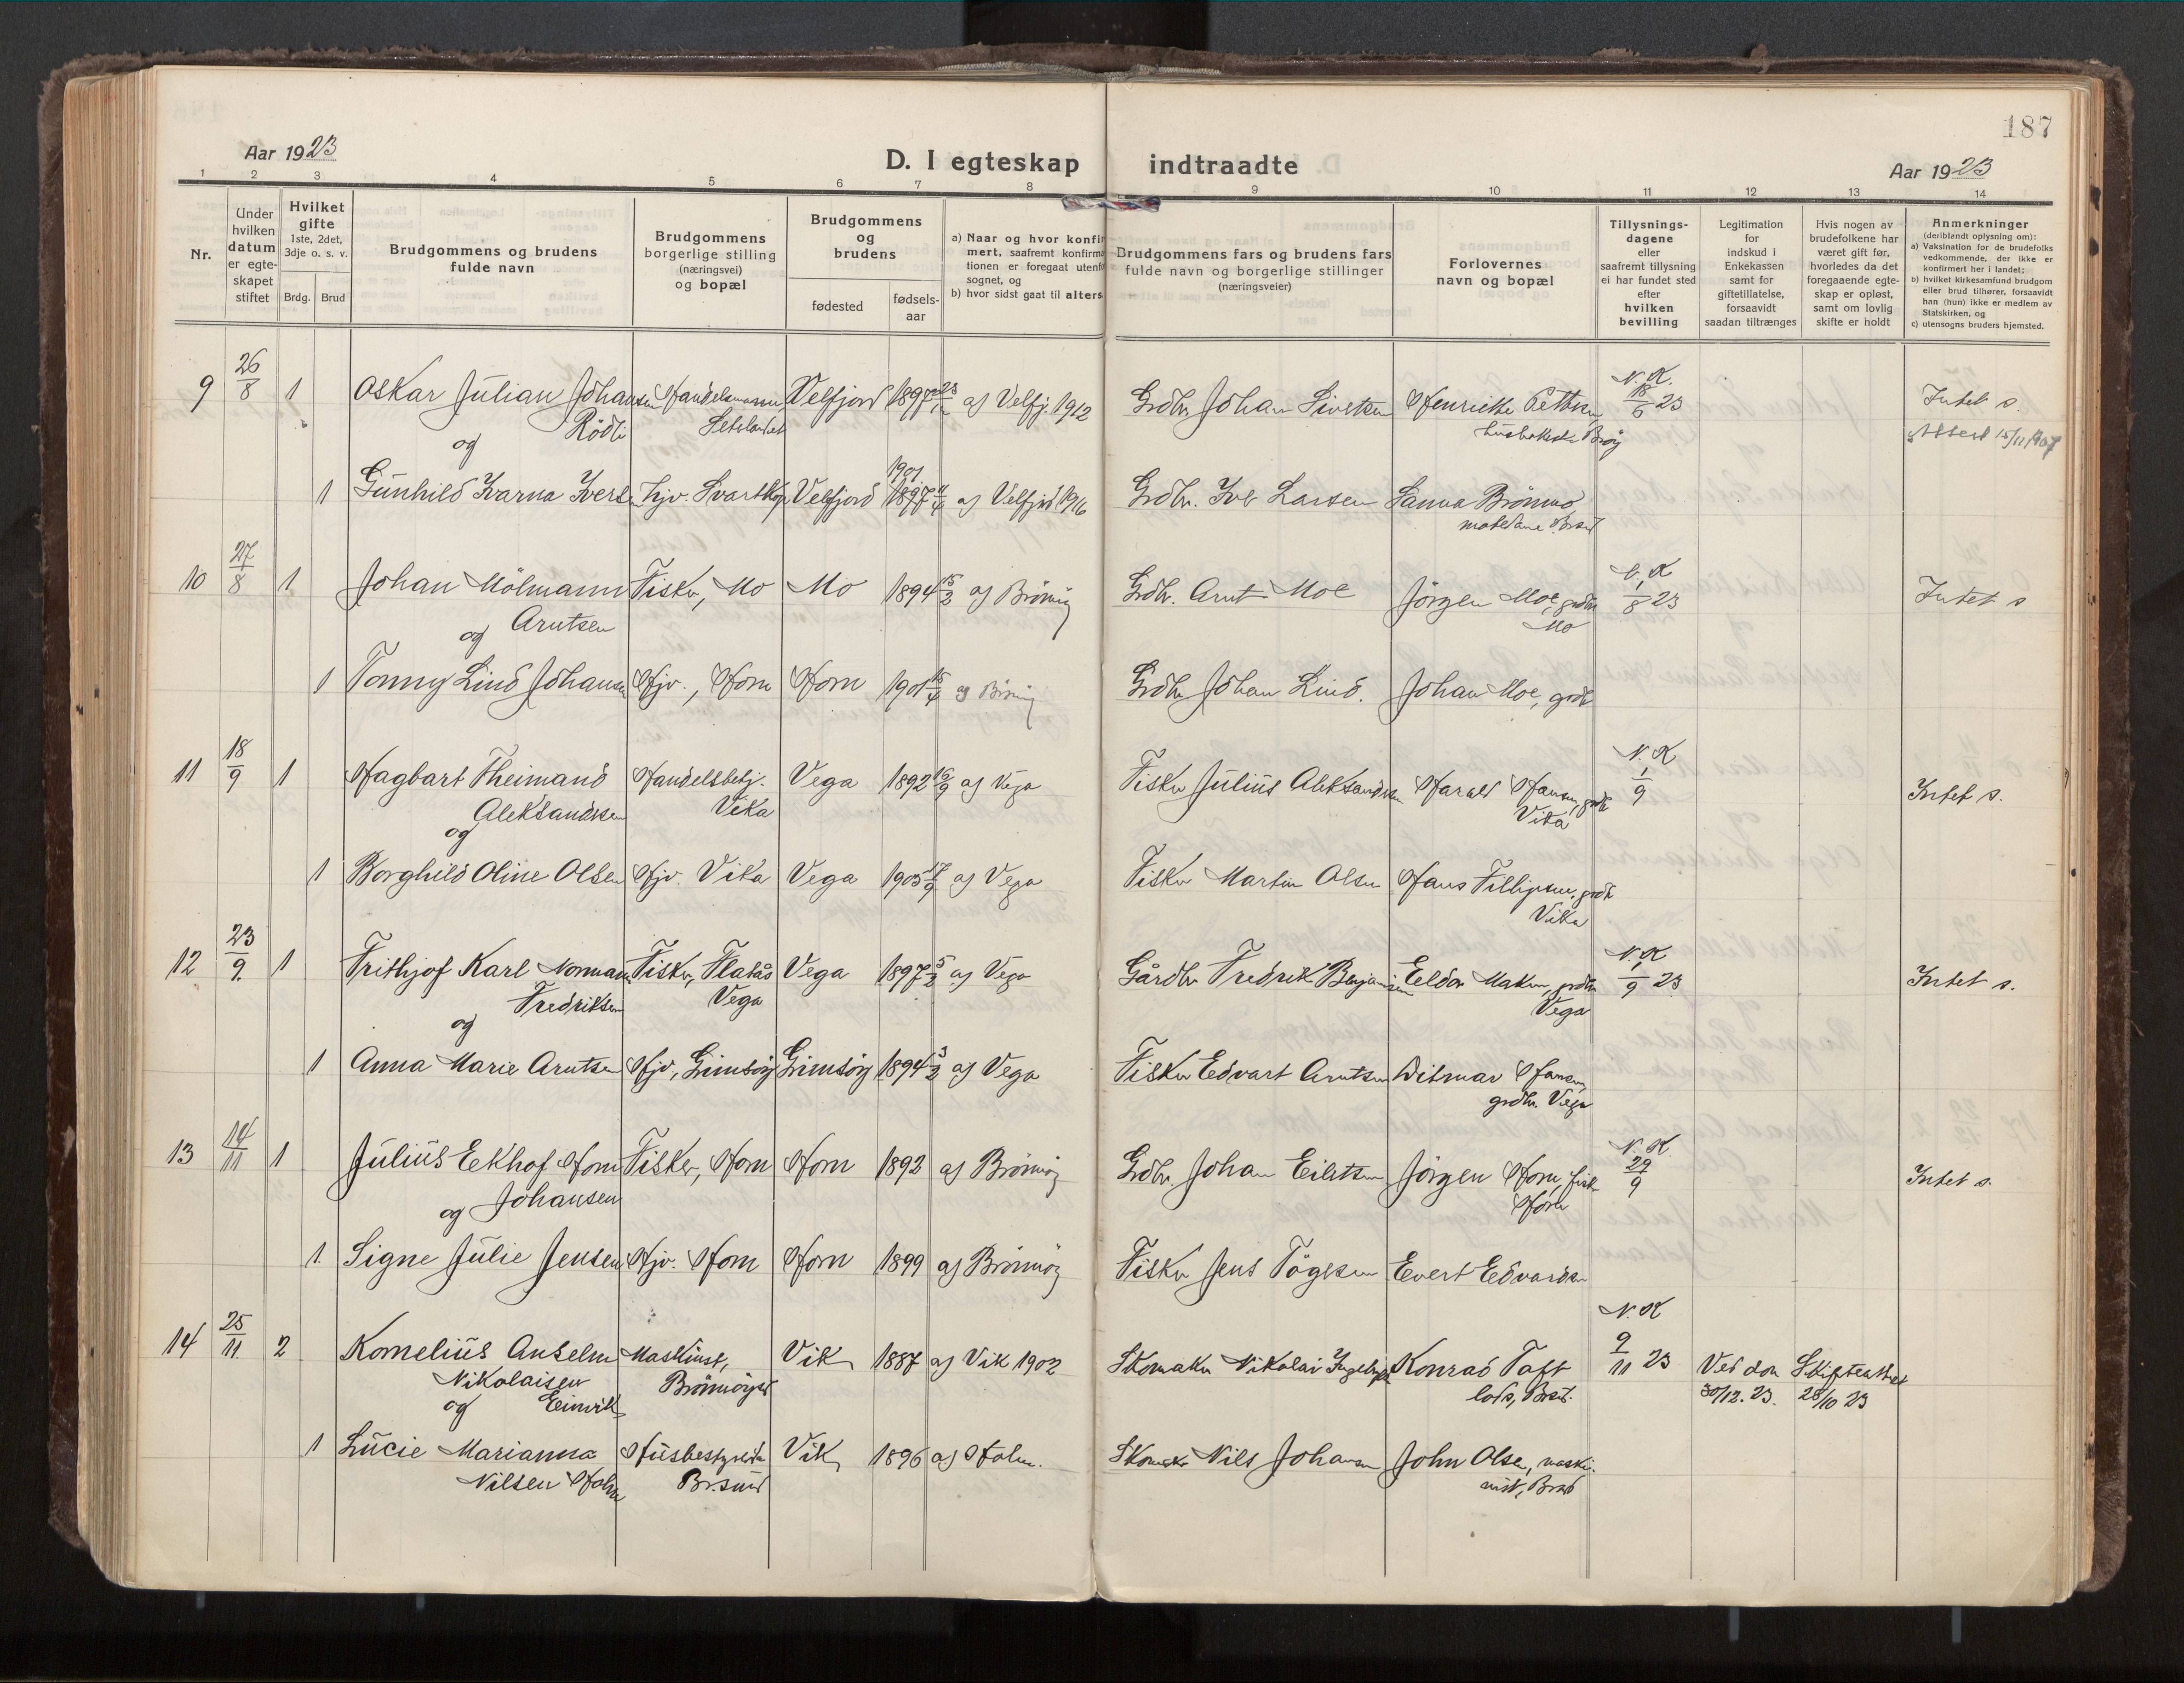 187
Aar 1923
D. I egteskap indtraadte
Aar 1923
1 2 3 4 5 6 7 8 9 10 11 12 13 14
Nr.
Under hvilken datum er egteskapet stiftet
Hvilket gifte 1ste, 2det, 3dje o. s. v.
Brdg. Brud
Brudgommens og brudens fulde navn
Brudgommens borgerlige stilling (næringsvei) og bopæl
Brudgommens og brudens
fødested
fødselsaar
a) Naar og hvor konfir
mert, saafremt konfirma
tionen er foregaat utenfo
sognet, og
b) hvor sidst gaat til alters
Brudgommens fars og brudens fars
fulde navn og borgerlige stillinger
(næringsveier)
Forlovernes
navn og bopæl
Tillysnings-
dagene
eller
saafremt tillysning
ei har fundet sted
efter
hvilken
bevilling
Legitimation
for
indskud i
Enkekassen
samt for
giftetillatelse,
forsaavidt
saadan tiltrænges
Hvis nogen av
brudefolkene har
været gift før,
hvorledes da det
foregaaende egte-
skap er opløst,
samt om lovlig
skifte er holdt
Anmerkninger
(deriblandt oplysning om):
a) Vaksination for de brudefolks
vedkommende, der ikke er
konfirmert her i landet;
b) hvilket kirkesamfund brudgom
eller brud tilhører, forsaavidt
han (hun) ikke er medlem av
Statskirken, og
c) utensogns bruders hjemsted.
9 26/8 1 Oskar Julian Johansen Handelsmann Velfjord 1897 23/12 af Velfj. 1912 Grdbr. Johan Sivertsen Henriette Pettersen N. K. 18/6 23 Intet s.
og Rödli
1 Gunhild Ivarna Iversen Hjv. Svartkop Velfjord 1901 1897 11/4 af Velfjord 1916 Grdbr. Iver Larsen Sanna Brönmo
10 27/8 1 Johan Mölmann Fisker, Mo Mo 1894 15/2 af Brönnøy Grdbr. Arnt Moe Jörgen Moe, grdbr. N. K 1/8 23 Intet s
og Arntsen Mo
1 Tonny Lind Johansen Hjv., Horn Horn 1901 15/4 af Brönnøy Grdbr Johan Lind. Johan Moe, grdb
11 18/9 1 Hagbart Theimand Handelsbetj. Vega 1892 16/9 af Vega Fisker Julius Aleksandersen Harald Hansen, grdb N. K 1/9 Intet s.
Aleksandersen Vika Vika
og
1 Borghild Oline Olsen Hjv. Vika Vega 1905 17/9 af Vega Fisker Martin Olsen Hans Fillipsen, grdb
Vika
12 23/9 1 Frithjof Karl Normann Fisker, Flatås Vega 1897 5/2 af Vega Gårdbr Fredrik Benjaminsen Eldor Maken, grdbr N. K 1/9 23 Intet s.
Fredriksen Vega Vega
og
1 Anna Marie Arntsen Hjv, Grimsöy Grimsöy 1894 3/2 af Vega Fisker Edvart Arntsen Ditmar Hansen,
grdbr. Vega
13 14/11 1 Julius Eekhof Horn Fisker, Horn Horn 1892 af Brönnöy Grdbr. Johan Eilertsen Jörgen Horn, fisk N. K. 29/9 Intet s.
og Johansen Horn
1. Signe Julie Jensen Hjv. Horn Horn 1899 af Brönnöy Fisker Jens Tögesen Evert Edvardsen
14 25/11 2 Kornelius Anselm Maskinist, Vik 1887 af Vik 1902 Skomaker Nikolai Ingebrigtsen Konrad Toft N. K 9/11 23 Ved dom Skifteattest
Nikolaisen Brönnöysd los, Brsd. 30/12. 23. 25/10 23
og Einvik
1 Lucie Marianna Husbestyrerinde Vik 1896 af Holm. Skomaker Nils Johansen John Olsen, maski-
Nilsen Holm Br.sund nist, Brsd